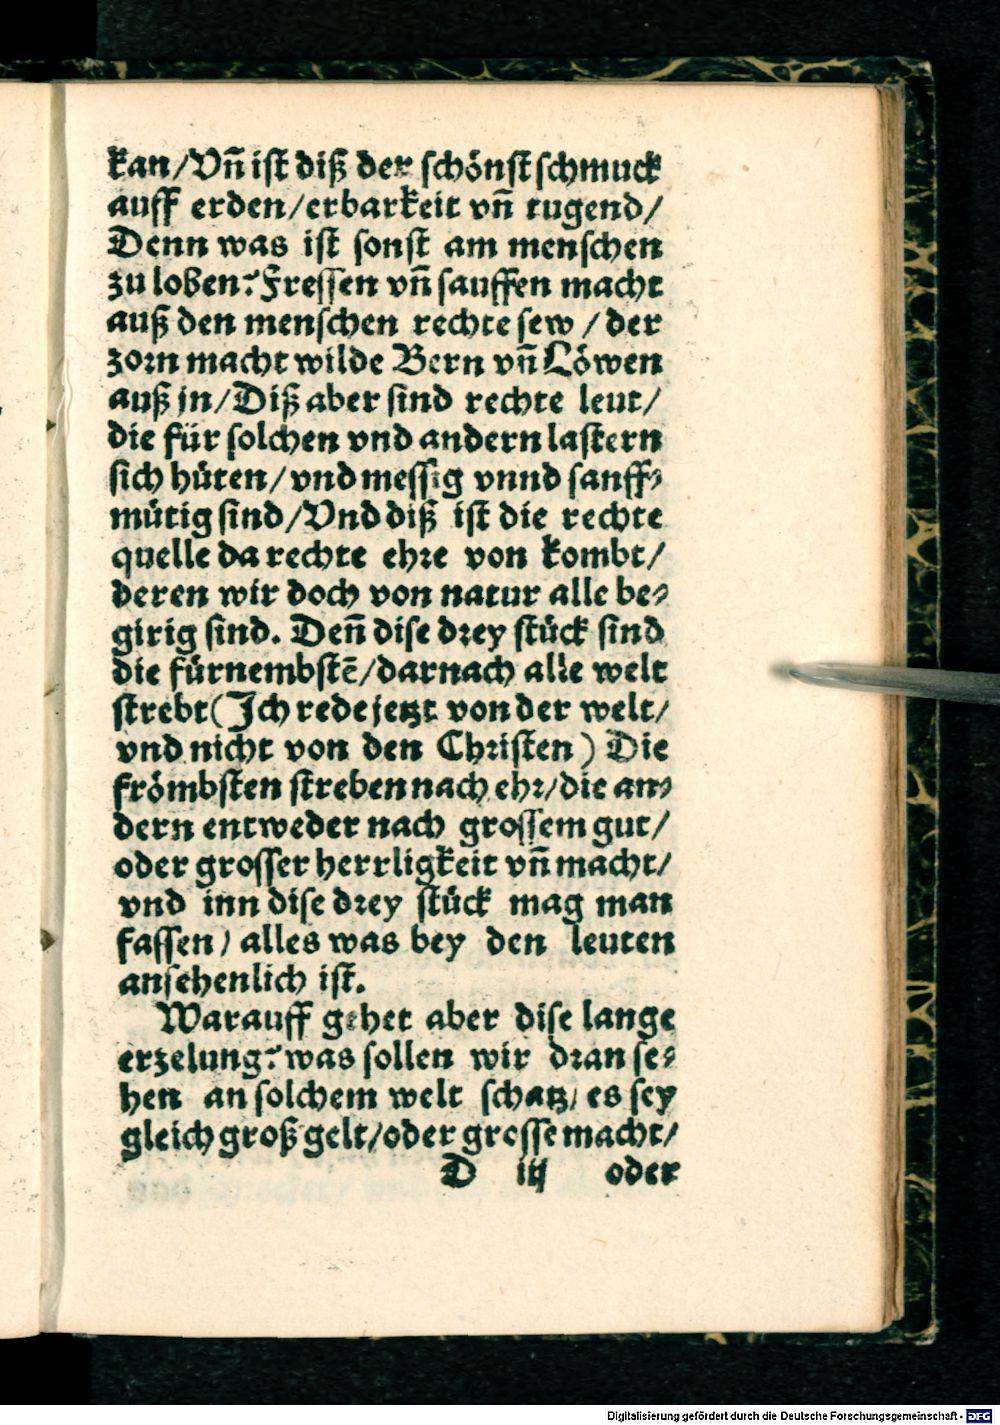 kan/Vn̄ ist diß der schönst schmuck
auff erden/erbarkeit vn̄ tugend/
Denn was ist sonst am menschen
zu loben? Fressen vn̄ sauffen macht
auß den menschen rechte sew / der
zorn macht wilde Bern vn̄ Löwen
auß jn/Diß aber sind rechte leut/
die für solchen vnd andern lastern
sich hüten/vnd messig vnnd sanff⸗
mütig sind/Vnd diß ist die rechte
quelle da rechte ehre von kombt/
deren wir doch von natur alle be⸗
girig sind. Den̄ dise drey stück sind
die fürnembstē/darnach alle welt
strebt(Ich rede jetzt von der welt/
vnd nicht von den Christen) Die
frömbsten streben nach ehr/die an⸗
dern entweder nach grossem gut/
oder grosser herrligkeit vn̄ macht/
vnd inn dise drey stück mag man
fassen/ alles was bey den leuten
ansehenlich ist.
Warauff gehet aber dise lange
erzelung? was sollen wir dran se⸗
hen an solchem welt schatz/ es sey
gleich groß gelt/oder grosse macht/
D iij oder
Digitalisierung gefördert durch die Deutsche Forschungsgemeinschaft - DFG